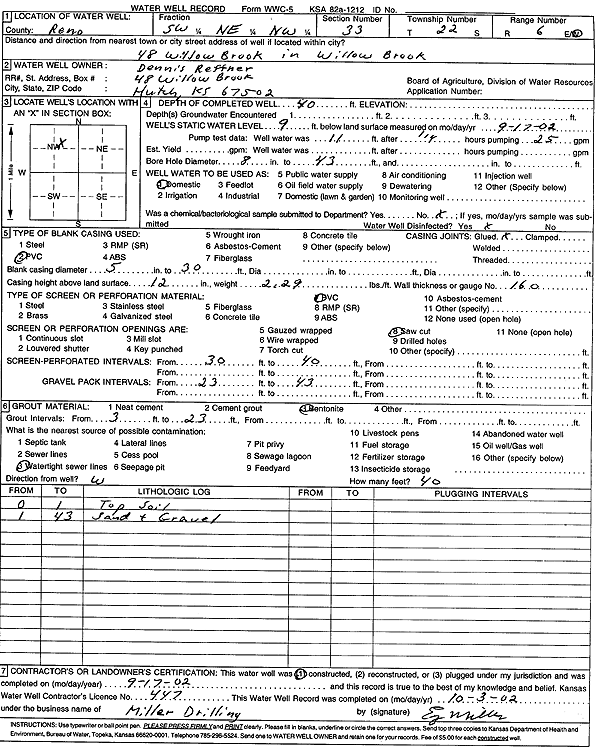 WATER WELL RECORD Form WWC-5 KSA 82a-1212 ID No.
1 LOCATION OF WATER WELL: Fraction Section Number Township Number Range Number
County: Reno SW ¼ NE ¼ NW ¼ 33 T 22 S R 6 E/W
Distance and direction from nearest town or city street address of well if located within city?
48 Willow Brook in Willow Brook
2 WATER WELL OWNER: Dennis Reffner
RR#, St. Address, Box #: 48 Willow Brook Board of Agriculture, Division of Water Resources
City, State, ZIP Code : Hutch, KS 67502 Application Number:
3 LOCATE WELL'S LOCATION WITH AN "X" IN SECTION BOX:
N
NW X NE
W E
SW SE
S
1 Mile
4 DEPTH OF COMPLETED WELL 40 ft. ELEVATION:
Depth(s) Groundwater Encountered 1 ft. 2. ft. 3. ft.
WELL'S STATIC WATER LEVEL 9 ft. below land surface measured on mo/day/yr 9-17-02
Pump test data: Well water was 11 ft. after 1/4 hours pumping 25 gpm
Est. Yield gpm: Well water was ft. after hours pumping gpm
Bore Hole Diameter 8 in. to 43 ft., and in. to ft.
WELL WATER TO BE USED AS: 5 Public water supply 8 Air conditioning 11 Injection well
1 Domestic 3 Feedlot 6 Oil field water supply 9 Dewatering 12 Other (Specify below)
2 Irrigation 4 Industrial 7 Domestic (lawn & garden) 10 Monitoring well
Was a chemical/bacteriological sample submitted to Department? Yes No X ; If yes, mo/day/yrs sample was sub-
mitted Water Well Disinfected? Yes X No
5 TYPE OF BLANK CASING USED: 5 Wrought iron 8 Concrete tile CASING JOINTS: Glued X Clamped
1 Steel 3 RMP (SR) 6 Asbestos-Cement 9 Other (specify below) Welded
2 PVC 4 ABS 7 Fiberglass Threaded
Blank casing diameter 5 in. to 30 ft., Dia in. to ft., Dia in. to ft.
Casing height above land surface 12 in., weight 2.29 lbs./ft. Wall thickness or gauge No. 160
TYPE OF SCREEN OR PERFORATION MATERIAL: 7 PVC 10 Asbestos-cement
1 Steel 3 Stainless steel 5 Fiberglass 8 RMP (SR) 11 Other (specify)
2 Brass 4 Galvanized steel 6 Concrete tile 9 ABS 12 None used (open hole)
SCREEN OR PERFORATION OPENINGS ARE: 5 Gauzed wrapped 8 Saw cut 11 None (open hole)
1 Continuous slot 3 Mill slot 6 Wire wrapped 9 Drilled holes
2 Louvered shutter 4 Key punched 7 Torch cut 10 Other (specify) ft.
SCREEN-PERFORATED INTERVALS: From 30 ft. to 40 ft., From ft. to ft.
From ft. to ft., From ft. to ft.
GRAVEL PACK INTERVALS: From 23 ft. to 43 ft., From ft. to ft.
From ft. to ft., From ft. to ft.
6 GROUT MATERIAL: 1 Neat cement 2 Cement grout 3 Bentonite 4 Other
Grout Intervals: From 3 ft. to 23 ft., From ft. to ft., From ft. to ft.
What is the nearest source of possible contamination: 10 Livestock pens 14 Abandoned water well
1 Septic tank 4 Lateral lines 7 Pit privy 11 Fuel storage 15 Oil well/Gas well
2 Sewer lines 5 Cess pool 8 Sewage lagoon 12 Fertilizer storage 16 Other (specify below)
3 Watertight sewer lines 6 Seepage pit 9 Feedyard 13 Insecticide storage
Direction from well? W How many feet? 40
FROM TO LITHOLOGIC LOG FROM TO PLUGGING INTERVALS
0 1 Top Soil
1 43 Sand + Gravel
7 CONTRACTOR'S OR LANDOWNER'S CERTIFICATION: This water well was (1) constructed, (2) reconstructed, or (3) plugged under my jurisdiction and was
completed on (mo/day/year) 9-17-02 and this record is true to the best of my knowledge and belief. Kansas
Water Well Contractor's Licence No. 447 This Water Well Record was completed on (mo/day/yr) 10-3-02
under the business name of Miller Drilling by (signature)
INSTRUCTIONS: Use typewriter or ball point pen. PLEASE PRESS FIRMLY and PRINT clearly. Please fill in blanks, underline or circle the correct answers. Send top three copies to Kansas Department of Health and
Environment, Bureau of Water, Topeka, Kansas 66620-0001. Telephone 785-296-5524. Send one to WATER WELL OWNER and retain one for your records. Fee of $5.00 for each constructed well.